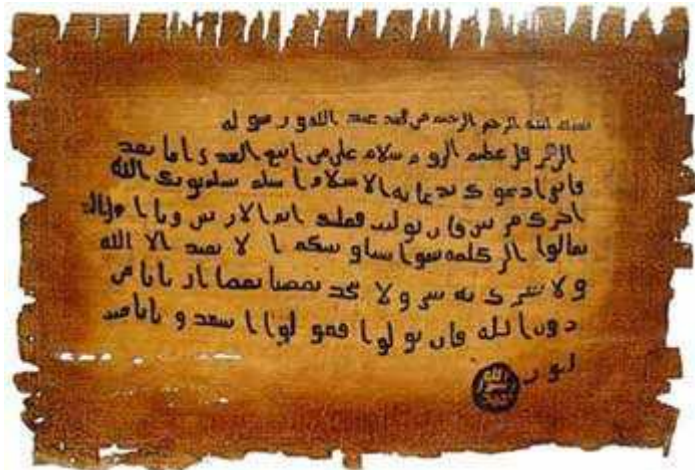 بسم الله الرحمن الرحيم من محمد عبد الله و رسوله
الى هرقل عظيم الروم سلام على من اتبع الهدى اما بعد
فانى ادعوك بدعاية الاسلام اسلم تسلم يوتك الله
اجرك مرتين فان توليت فعليك اثم الاريسين ويا اهل
تعالوا الى كلمة سوا بيننا وبينكم ا لا نعبد الا الله
ولا نشرك به شيا ولا يتخذ بعضنا بعضا اربابا من
دون الله فان تولوا فقولوا اشهدو بانا مس
لمون
الله
رسول
محمد